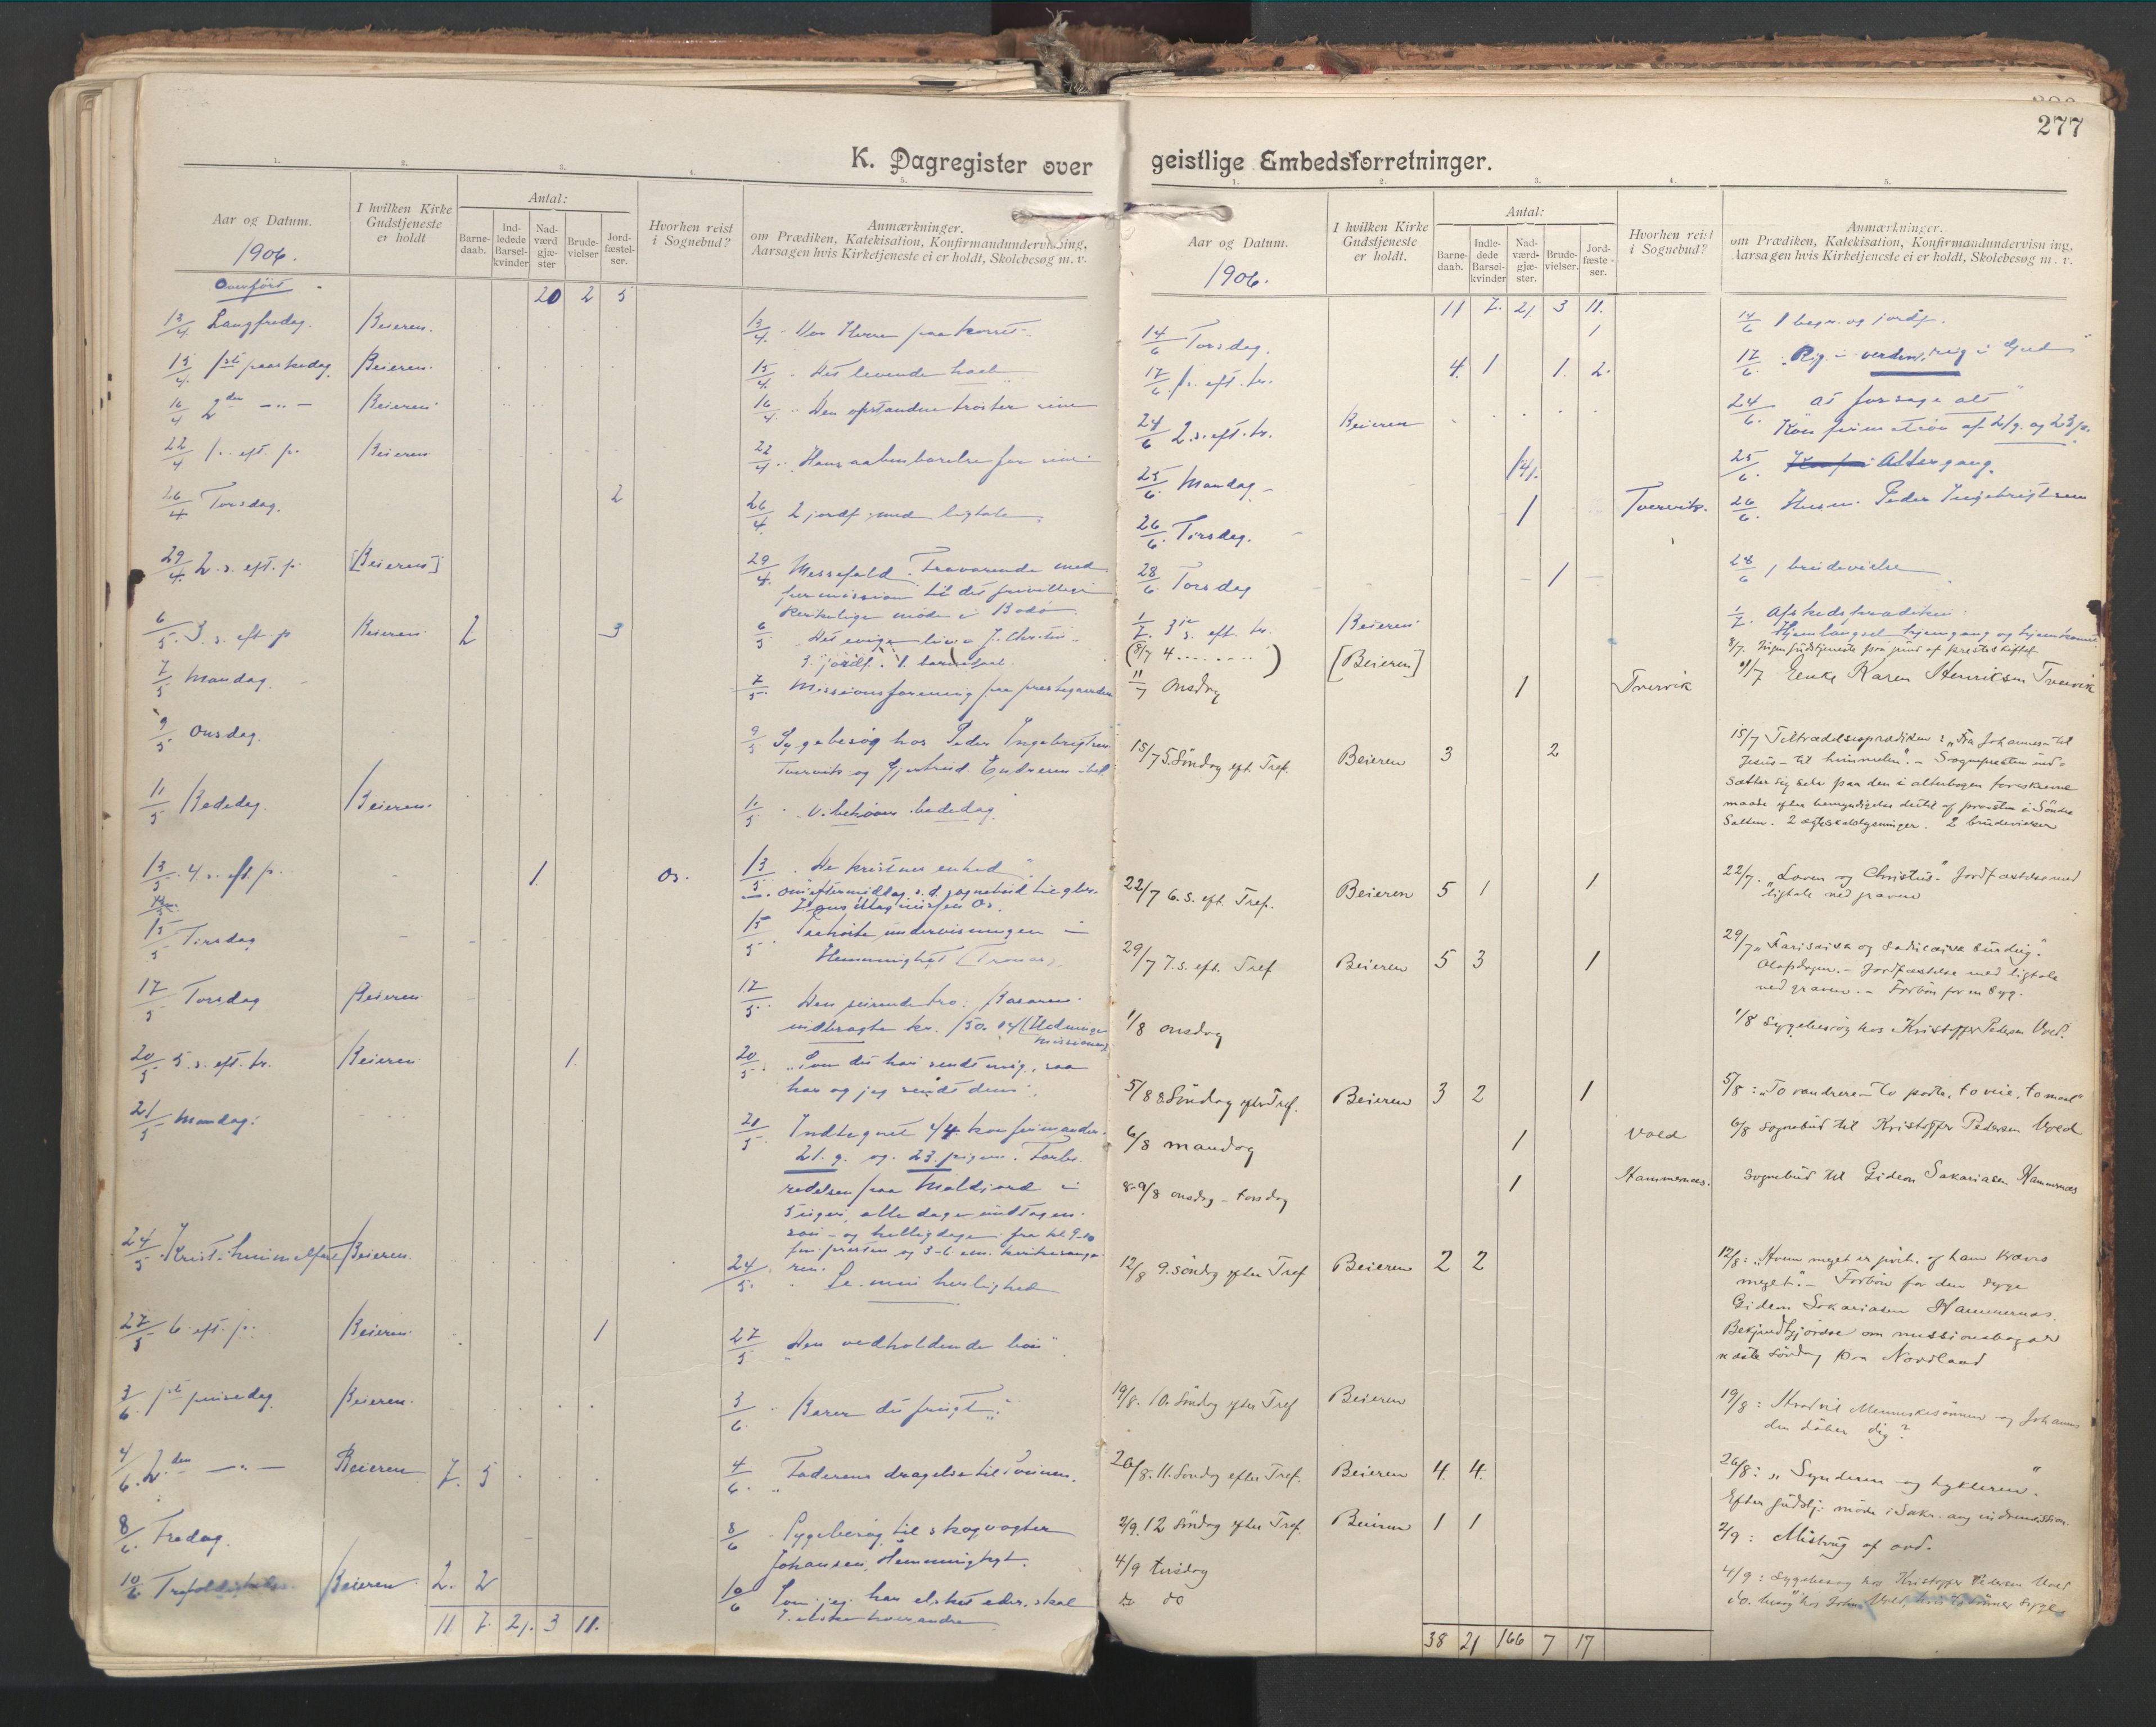 277
K. Dagregister over
1. 2. 3. 4. 5.
Aar og Datum.
1906.
I hvilken Kirke
Gudstjeneste
er holdt
Antal:
Barne-
daab.
Ind-
ledede
Barsel-
kvinder
Nad-
værd
gjæ-
ster
Brude-
vielser
Jord-
fæstel-
ser.
Hvorhen reist
i Sognebud?
Anmærkninger.
om Prædiken, Katekisation, Konfirmandundervisning,
Aarsagen hvis Kirketjeneste ei er holdt, Skolebesøg m. v.
Overført 20 2 5
13/4. Langfredag. Beieren. 13/4. Vor Herre paa korset.
15/4. 1ste paaskedag Beieren. 15/4. Det levende haab
16/4 2den -"- Beieren. 16/4 Den opstandne trøster sine
22/4 1 s. eft. p. Beieren 22/4. Hans aabenbarelse for sine
26/4 Torsdag. 2 26/4. 2 jordf. med ligtale.
29/4. 2. s. eft. p. [Beieren] 29/4. Messefald. Fraværende med
permission til det frivillige
kirkelige møde i Bodø
6/5. 3. s. eft. p Beieren. 2 3 6/5 Det evige liv i J. Christus.
3. jordf. 1.
7/5 Mandag. 7/5. Missionsforening paa prestegaarden
9/5. Onsdag. 9/5 Sygebesøg hos Peder Ingebrigtsen
Tvervik og Gjertrud
11/5 Bededag. Beieren. 11/5 Vi behøver bededag
13/5. 4 s. eft. p. 1 Os. 13/5. De kristnes enhed
Om eftermiddag s. d. sognebud til
Hans Magnussen Os.
15/5 Tirsdag 15/5 undervisningen i
Hemmingløt
17/5 Torsdag Beieren 17/5. Den seirende tro. Basaren
indbragte kr. 150.04 (Hedninge
missionen)
20/5. 5. s. eft. p. Beieren 1 20/5. "Som du har sendt mig, saa
har og jeg sendt dem".
21/5 Mandag. 21/5. Indtegnet 44 konfirmander.
21. g. og 23. piger. Forbe-
redelsen paa Moldjord i
5 uger, alle dage undtagen
søn- og helligdage fra kl. 9-10
fm. presten og 3-6 em. kirkesange-
ren.
24/5. Kristi himmelfart Beieren. 24/5. Se min herlighed
27/5 6. eft. p. Beieren 1 27/5 "Den vedholdende bøn".
3/6. 1ste pinsedag Beieren. 3/6. Bærer du frugt".
4/6. 2den -"- Beieren 7. 5 4/6. Faderens dragelse til sønnen.
8/6. Fredag. 8/6 Sygebesøg til skogvogter
Johansen,
10/6 Beieren. 2. 2 10/6 Som jeg har elsket eder, skal
I elske hverandre
11. 7. 21. 3 11.
geistlige Embedsforretninger.
1. 2. 3. 4. 5.
Aar og Datum.
1906.
I hvilken Kirke
Gudstjeneste
er holdt.
Antal:
Barne-
daab.
Indle-
dede
Barsel-
kvinder
Nad-
værd-
gjæ-
ster.
Brude-
vielser.
Jord-
fæste-
ser.
Hvorhen reist
i Sognebud?
Anmærkninger.
om Prædiken, Katekisation, Konfirmandundervisning,
Aarsagen hvis Kirketjeneste ei er holdt, Skolebesøg m. v.
11 7. 21 3 11.
14/6 Torsdag. 1 14/6 1 begr. og jordf.
17/6. 1 s. eft. tr. 4. 1 1. 2. 17/6. "Rig i verden, rig i Gud"
24/6 2. s. eft. tr. Beieren 24/6. At forsage alt"
Konfirmation af 21 g. og 23 p.
25/6. Mandag 141. 25/6. Altergang.
26/6. Tirsdag. 1 Tvervik. 26/6. Husm. Peder Ingebrigtsen
28/6. Torsdag 1 28/6 1 brudevielse
1/7. 3die s. eft. tr. Beieren. 1/7. Afskedsprædiken.
Hjemlængsel hjemgang og hjemkomst
(8/7 4 ........) [Beieren] 8/7. Ingen gudstjeneste paa grund af presteskiftet
11/7 Onsdag 1 Tvervik 11/7 Enke Karen Henriksen Tvervik
15/7 5. Søndag eft. Tref. Beieren 3 2 15/7 Tiltrædelsesprædiken: "Fra Johannes til
Jesus - til himmelen". - Sognepresten ind-
sætter sig selv paa den i alterbogen foreskrevne
maade efter bemyndigelse dertil af provsten i Søndre
Salten. 2 ægteskabslysninger. 2 brudevielser
22/7 6. S. eft. Tref. Beieren 5 1 1 22/7. "Loven og Christus". Jordfæstelse med
ligtale ved graven
29/7 7. s. eft. Tref Beieren 5 3 1 29/7 "Farisæisk og saducæisk surdeig".
Olafsdagen. - Jordfæstelse med ligtale
ved graven. - Forbøn for en syg.
1/8 onsdag 1/8 Sygebesøg hos Kristoffer Pedersen Vold.
5/8 8. Søndag efter Tref. Beieren 3 2 1 5/8: "To vandrere - to porte, to veie, to maal"
6/8 mandag 1 Vold 6/8 Sognebud til Kristoffer Pedersen Vold
8-9/8 onsdag - torsdag 1 Hammernæs. Sognebud til Gideon Sakariasen Hammernæs
12/8 9. søndag efter Tref Beieren 2 2 12/8: "Hvem meget er givet, af ham kræves
meget". - Forbøn for den syge
Gideon Sakariasen Hammernæs.
Bekjendtgjørelse om missionsdagen
næste Søndag paa Nordland
19/8. 10. Søndag efter Tref Beieren 19/8: Hvad vil Menneskesønnen og Johannes
den døber dig?
26/8. 11. Søndag efter Tref. Beieren 4. 4. 26/8: "Synderen og hykleren".
Efter gudstj. møde i Sakr. ang indremission.
2/9. 12 Søndag efter Tref. Beieren 1 1 2/9: Misbrug af ord.
4/9 tirsdag 4/9: Sygebesøg hos Kristoffer Pedersen Vold
do do do. besøg hos Johan Vold,
38 21 166 7 17